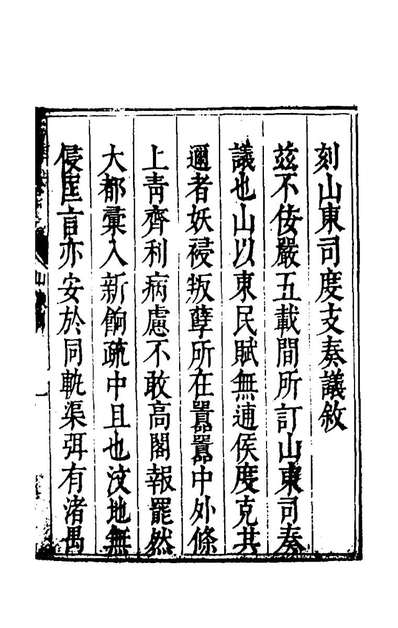 刻山東司度支奏議敘
茲不佞嚴五載間所訂山東司奏
議也山以東民賦無逋侯度克其
邇者妖祲叛孽所在囂囂中外條
上青齊利病慮不敢高閣報罷然
大都彙入新餉疏中且也汶地無
侵言亦安於同軌渠弭有渚禺
山
一